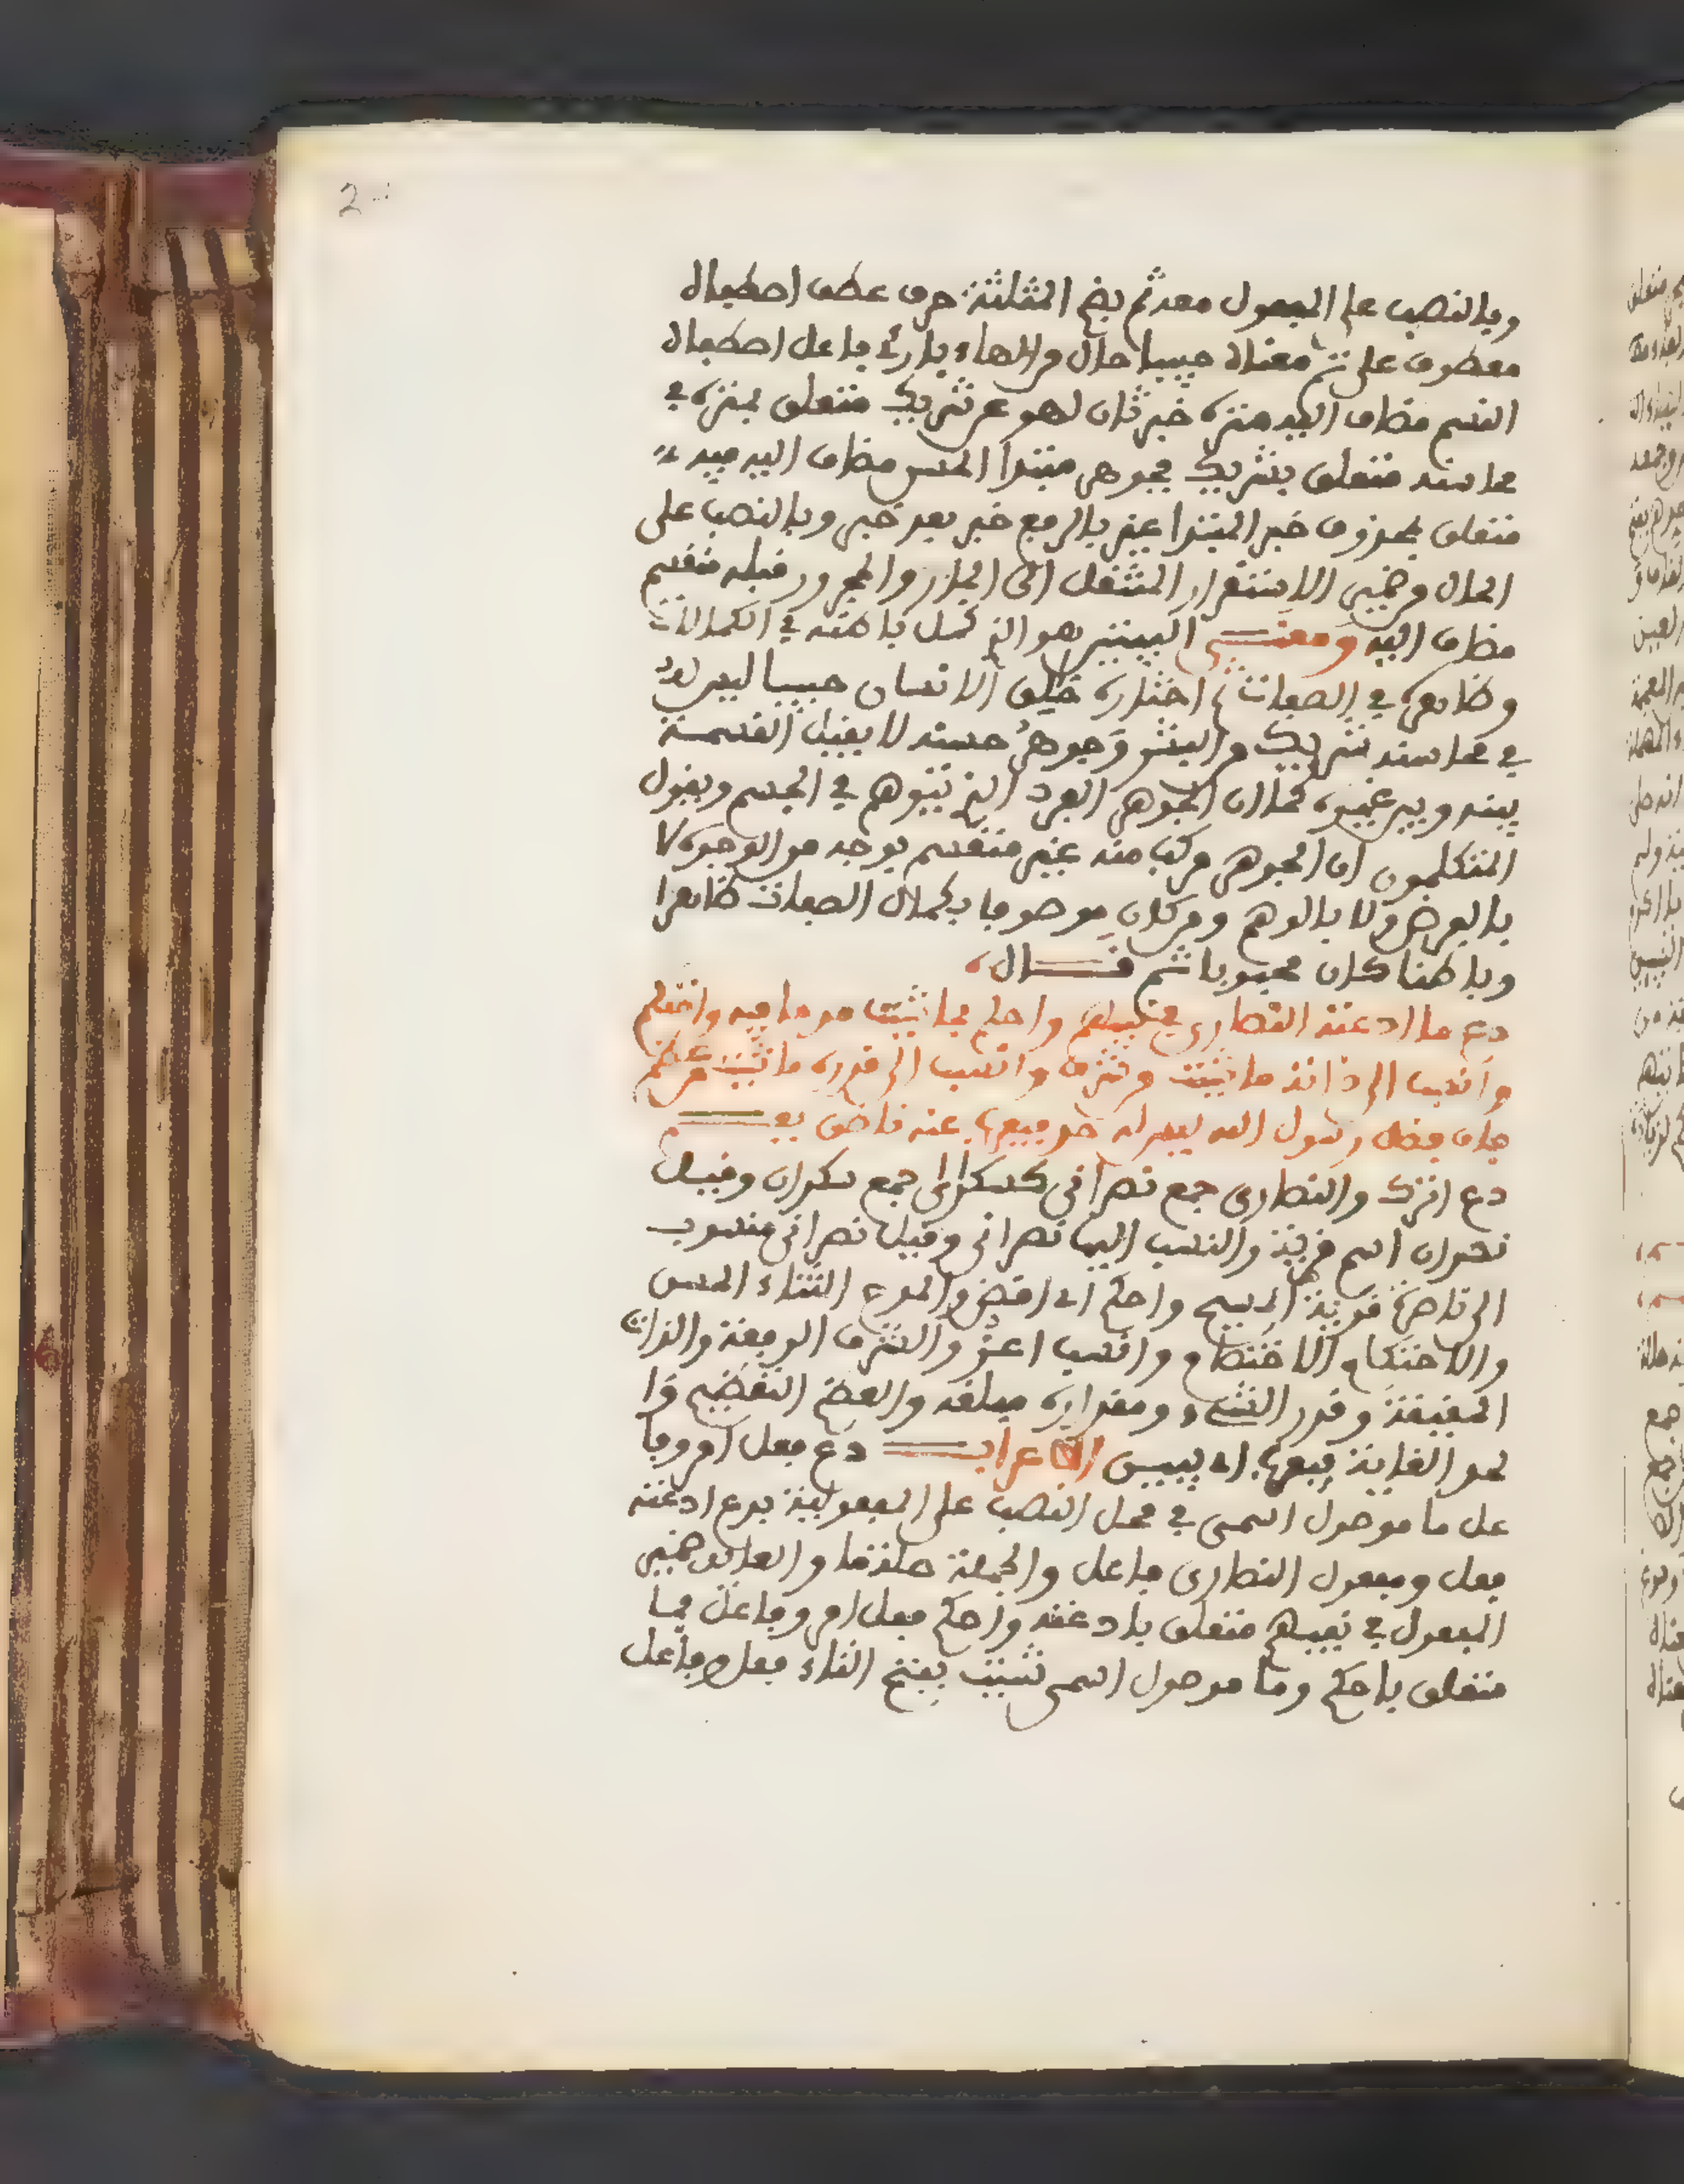 2
وبالنصب على المفعول معه ثم بضم المثلثة حرف عطف اصطفاه
معطوف على تم معناه حبيبا حال من الهاء بارئ فاعل اصطفاه
النسم مضاف اليه منزه خبر ثان لهو عن شريك متعلق بمنزه في
محاسنه متعلق بشريك فجوهر مبتدا الحسن مضاف اليه فيه
متعلق بمحذوف خبر المبتدا غير بالرفع خبر بعد خبر وبالنصب على
الحال من ضمير الاستقرار المنتقل الى الجار والمجرور قبله منقسم
مضاف اليه ومعنى البيتين فهو الذي كمل باطنه في الكمالات
وظاهره في الصفات ثم اختاره خالق الانسان حبيبا ليس له
في محاسنه شريك من البشر وجوهر حسنه لا يقبل القسمة
بينه وبين غيره كما ان الجوهر الفرد الذي يتوهم في الجسم ويقول
المتكلمون ان الجوهر مركب منه غير منقسم بوجه من الوجوه لا
بالفرض ولا بالوهم ومن كان موصوفا بكمال الصفات ظاهرا
وباطنا كان محبوبا ثم قال
دع ما ادعته النصارى في نبيهم واحكم بما شئت مدحا فيه واحتكم
وانسب الى ذاته ما شئت من شرف وانسب الى قدره ما شئت من عظم
فان فضل رسول الله ليس له حد فيعرب عنه ناطق بفم
دع اترك والنصارى جمع نصراني كسكارى جمع سكران وقيل
نصران اسم قرية والنسب اليها نصراني وقيل نصراني منسوب
الى ناصرة قرية المسيح واحكم اي اقض والمدح الثناء الحسن
والاحتكام الاختصام وانسب اعز والشرف الرفعة والذات
الحقيقة وقدر الشيء ومقداره مبلغه والعظم التعظيم وا
لحد الغاية فيعرب اي يبين الاعراب دع فعل امر وفا
عل ما موصول اسمي في محل النصب على المفعولية بدع ادعته
فعل ومفعول النصارى فاعل والجملة صلة ما والعائد ضمير
المفعول في نبيهم متعلق بادعته واحكم فعل امر وفاعل بما
متعلق باحكم وما موصول اسمي شئت بفتح التاء فعل وفاعل